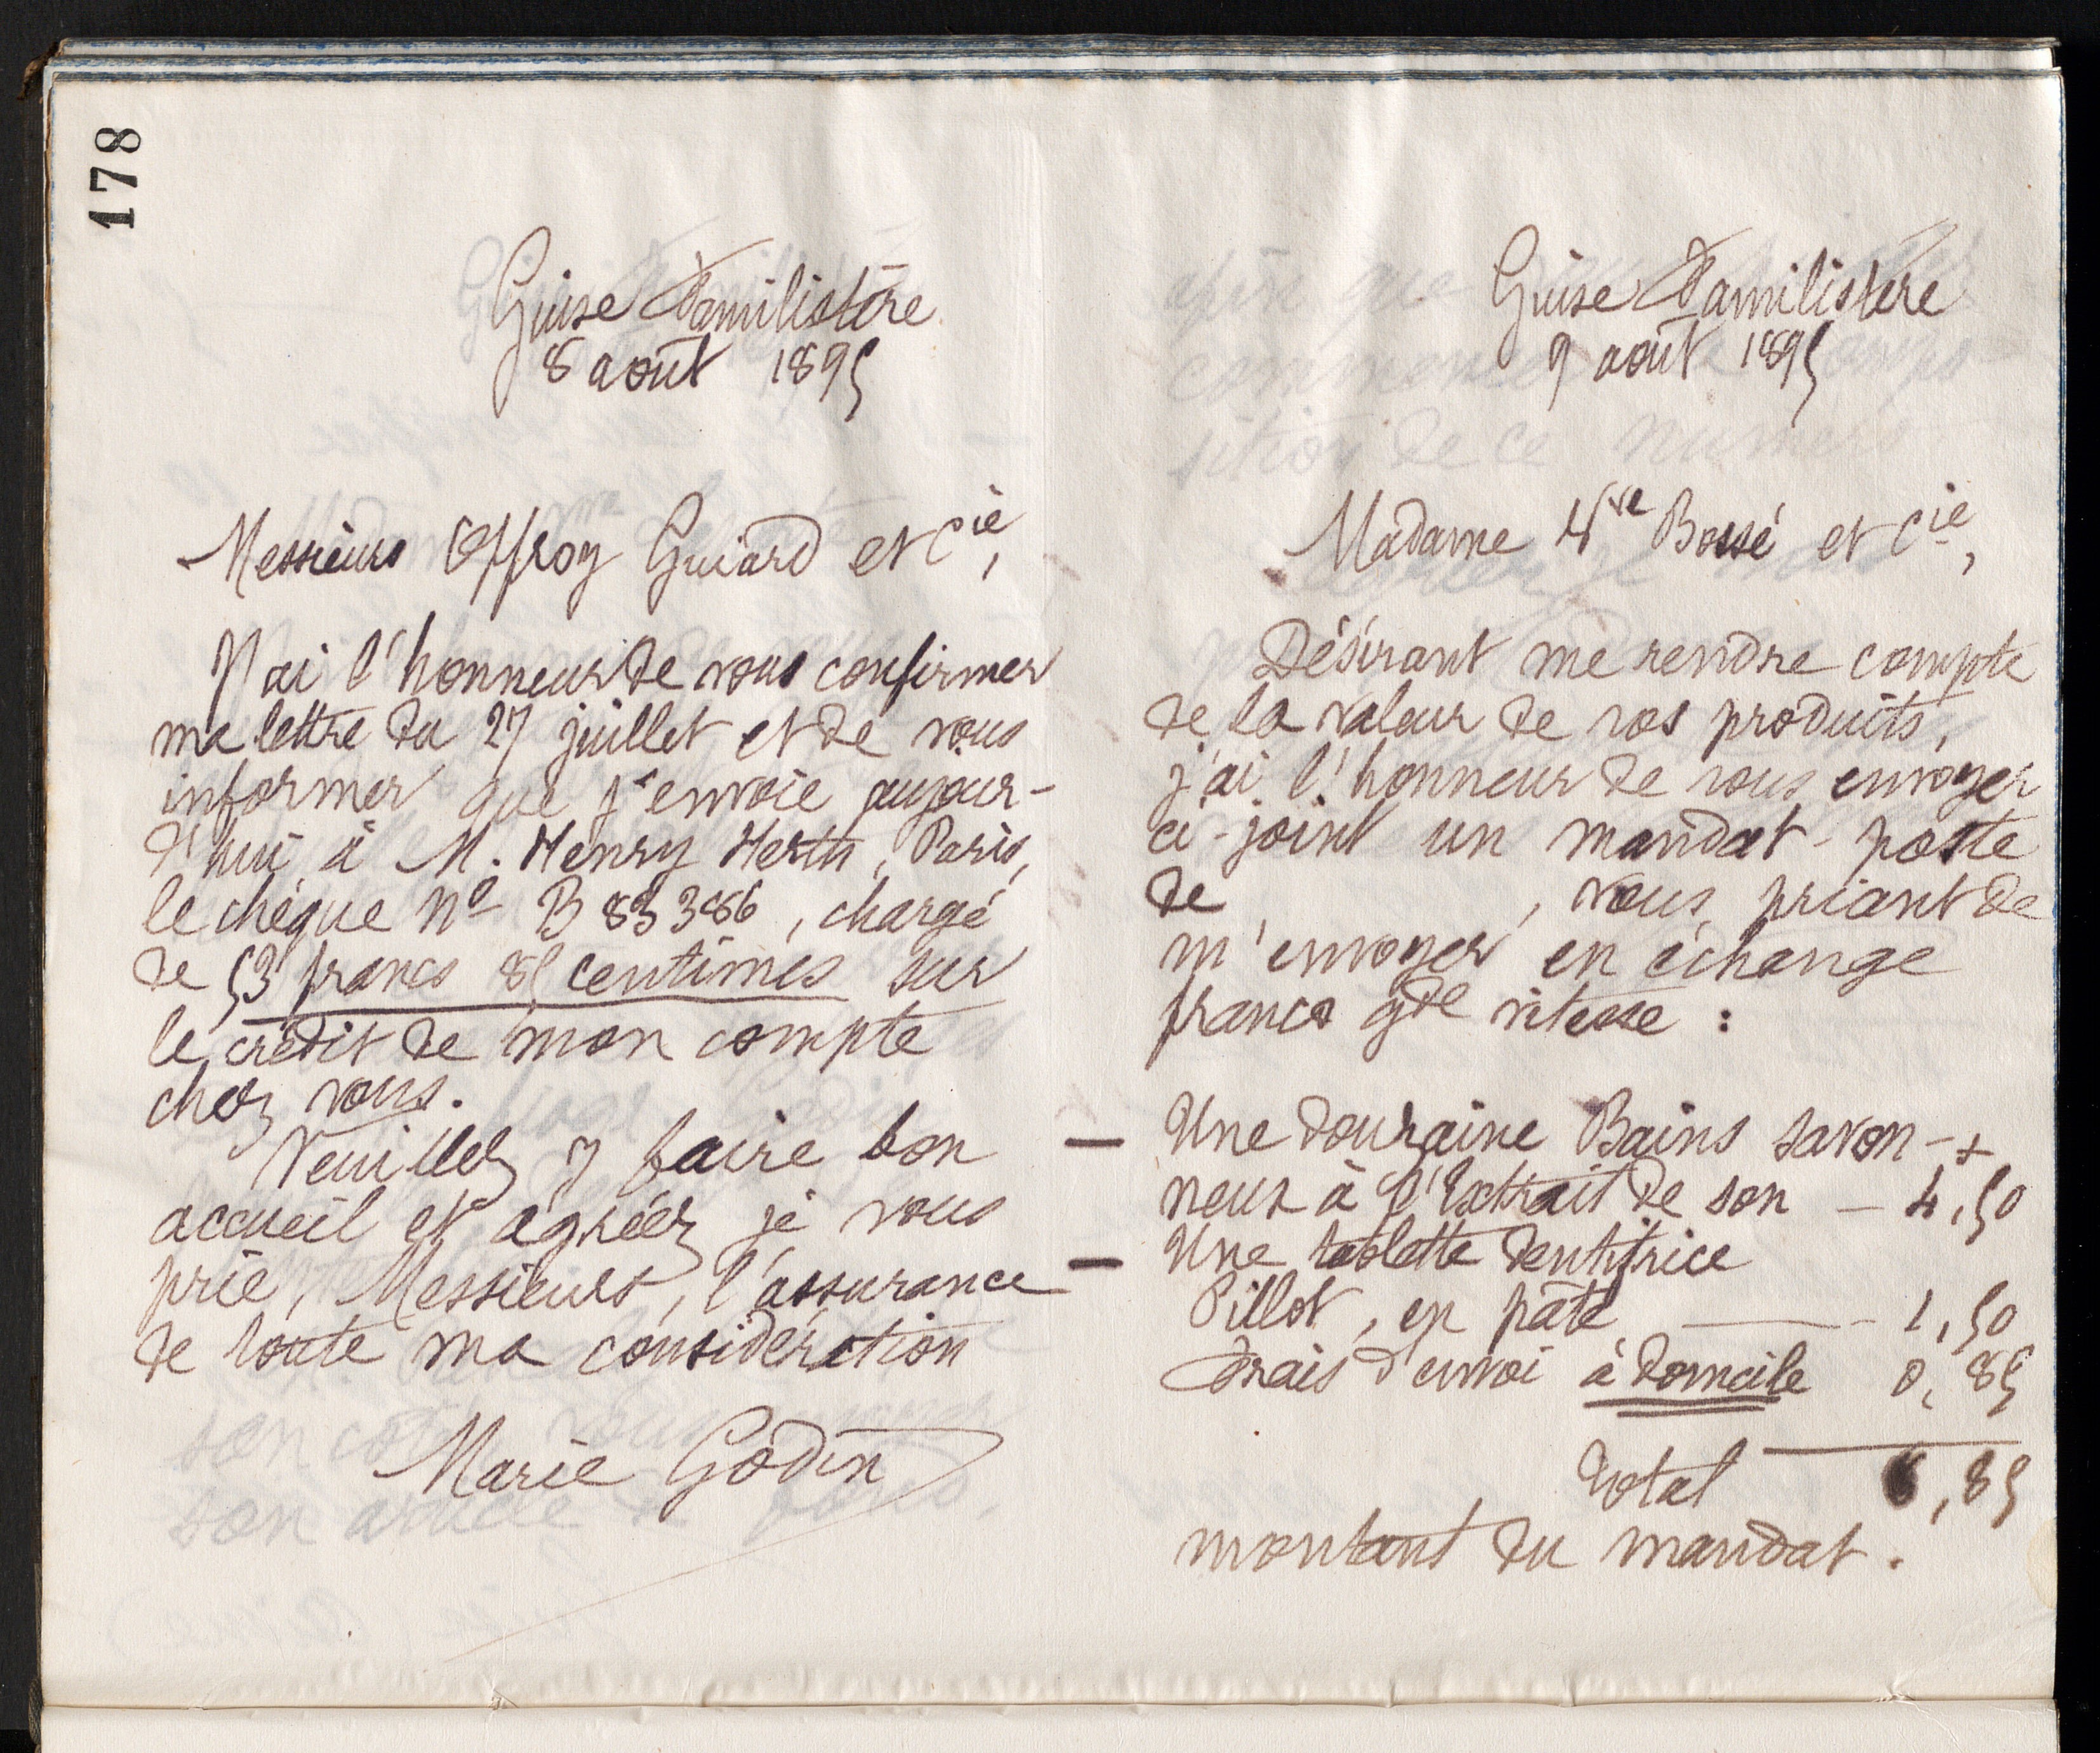 178
Guise Familistère
8 août 1895
Messieurs Offroy Guiard et Cie,
J'ai l'honneur de vous confirmer
ma lettre du 27 juillet et de vous
informer que j'envoie aujour-
d'hui à M. Henry Herth, Paris,
le chèque No B 83386, chargé
de 53 francs 85 centimes sur
le crédit de mon compte
chez vous.
Veuillez y faire bon
accueil et agréez je vous
prie, Messieurs, l'assurance
de toute ma considération
Marie Godin
Guise Familistère
9 août 1895
Madame Vve Bossé et Cie,
Désirant me rendre compte
de la valeur de vos produits,
j'ai l'honneur de vous envoyer
ci-joint un mandat-poste
de , vous priant de
m'envoyer en échange
franco gde vitesse :
— Une douzaine Bains savon-
neux à l'Extrait de son — 4,50
— Une tablette dentifrice
Pillot, en pâte — 1,50
Frais d'envoi à domicile 0,85
Total 6,85
montant du mandat.